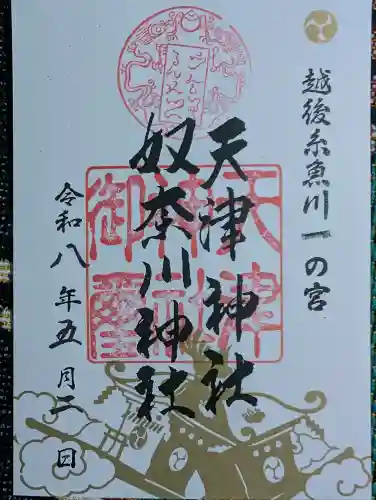 越後糸魚川一の宮
天津神社
奴奈川神社
令和八年五月二日